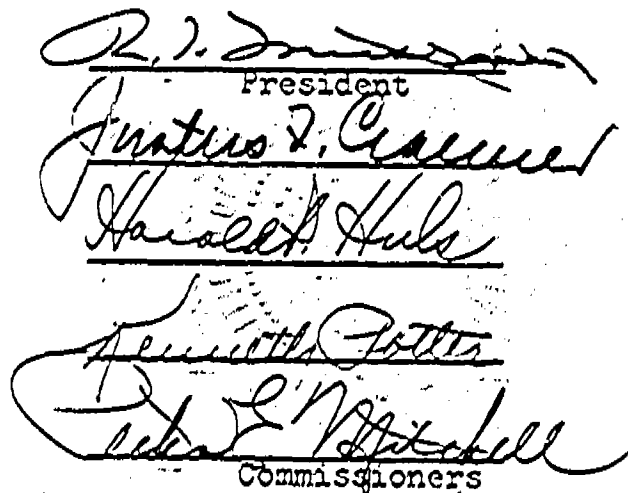 R. J.
President
Justus F. Craemer
Harold P. Huls
Kenneth Potter
Peter E. Mitchell
Commissioners